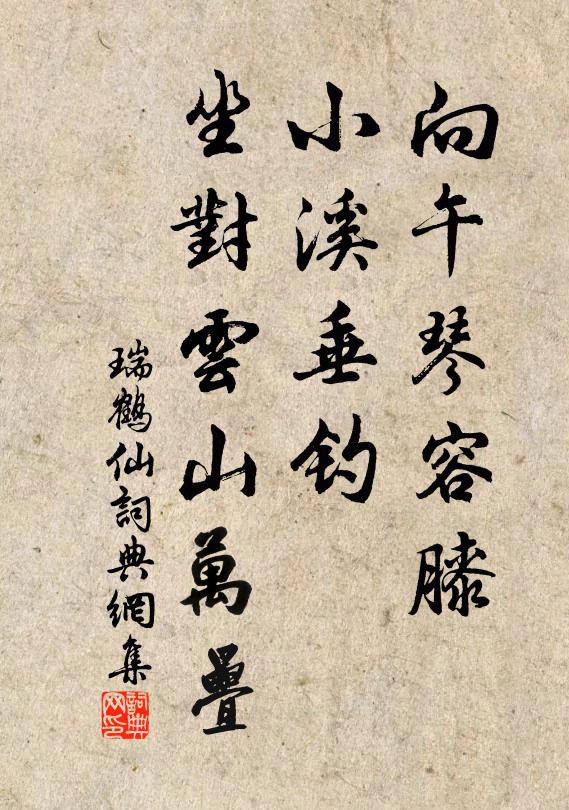 向午琴容膝
小溪垂釣
坐對雲山萬疊
瑞鶴仙詞典網集
詞典
网印